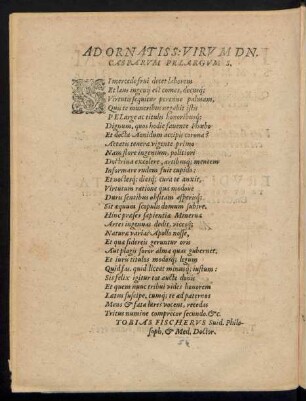 AD ORNATISS: VIRVM DN.
CASPARVM PELARGVM S.
SI mercede frui decet laborem
Et laus ingenij est comes, decusq;
Virtutis sequitur perenne palmam,
Quis te muneribus negabit istis
PELarge ac titulis honoribusq;
Dignum, quos hodie favente Phœbo
Et docta Aonidum accipis corona?
Aetatis tenera vigente primo
Nam flore ingenium, politiori
Doctrina excolere, artibusq; mentem
Informare rudem fuit cupido:
Et noctesq; diesq; cura te anxie,
Virtutum ratione qua modove
Duris sentibus obsitam asperosq;
Sit æquum scopulos domum subire.
Hinc præses sapientiæ Minerva
Artes ingenuas dedit, vicesq;
Naturæ varias Apollo nosse,
Et quo sidereis geruntur oris
Aut plagis soror alma quas gubernet.
Et juris titulos modosq; legum
Quid fas, quid liceat minusq; justum:
Sis felix igitur tot aucte donis
Et quem nunc tribui vides honorem
Lætus suscipe, cumq; te ad paternos
Mens & fata lares vocent, recedas
Tritus numine comprecor secundo. &c.
TOBIAS FISCHERVS Suid. Philo-
soph. & Med. Doctor.